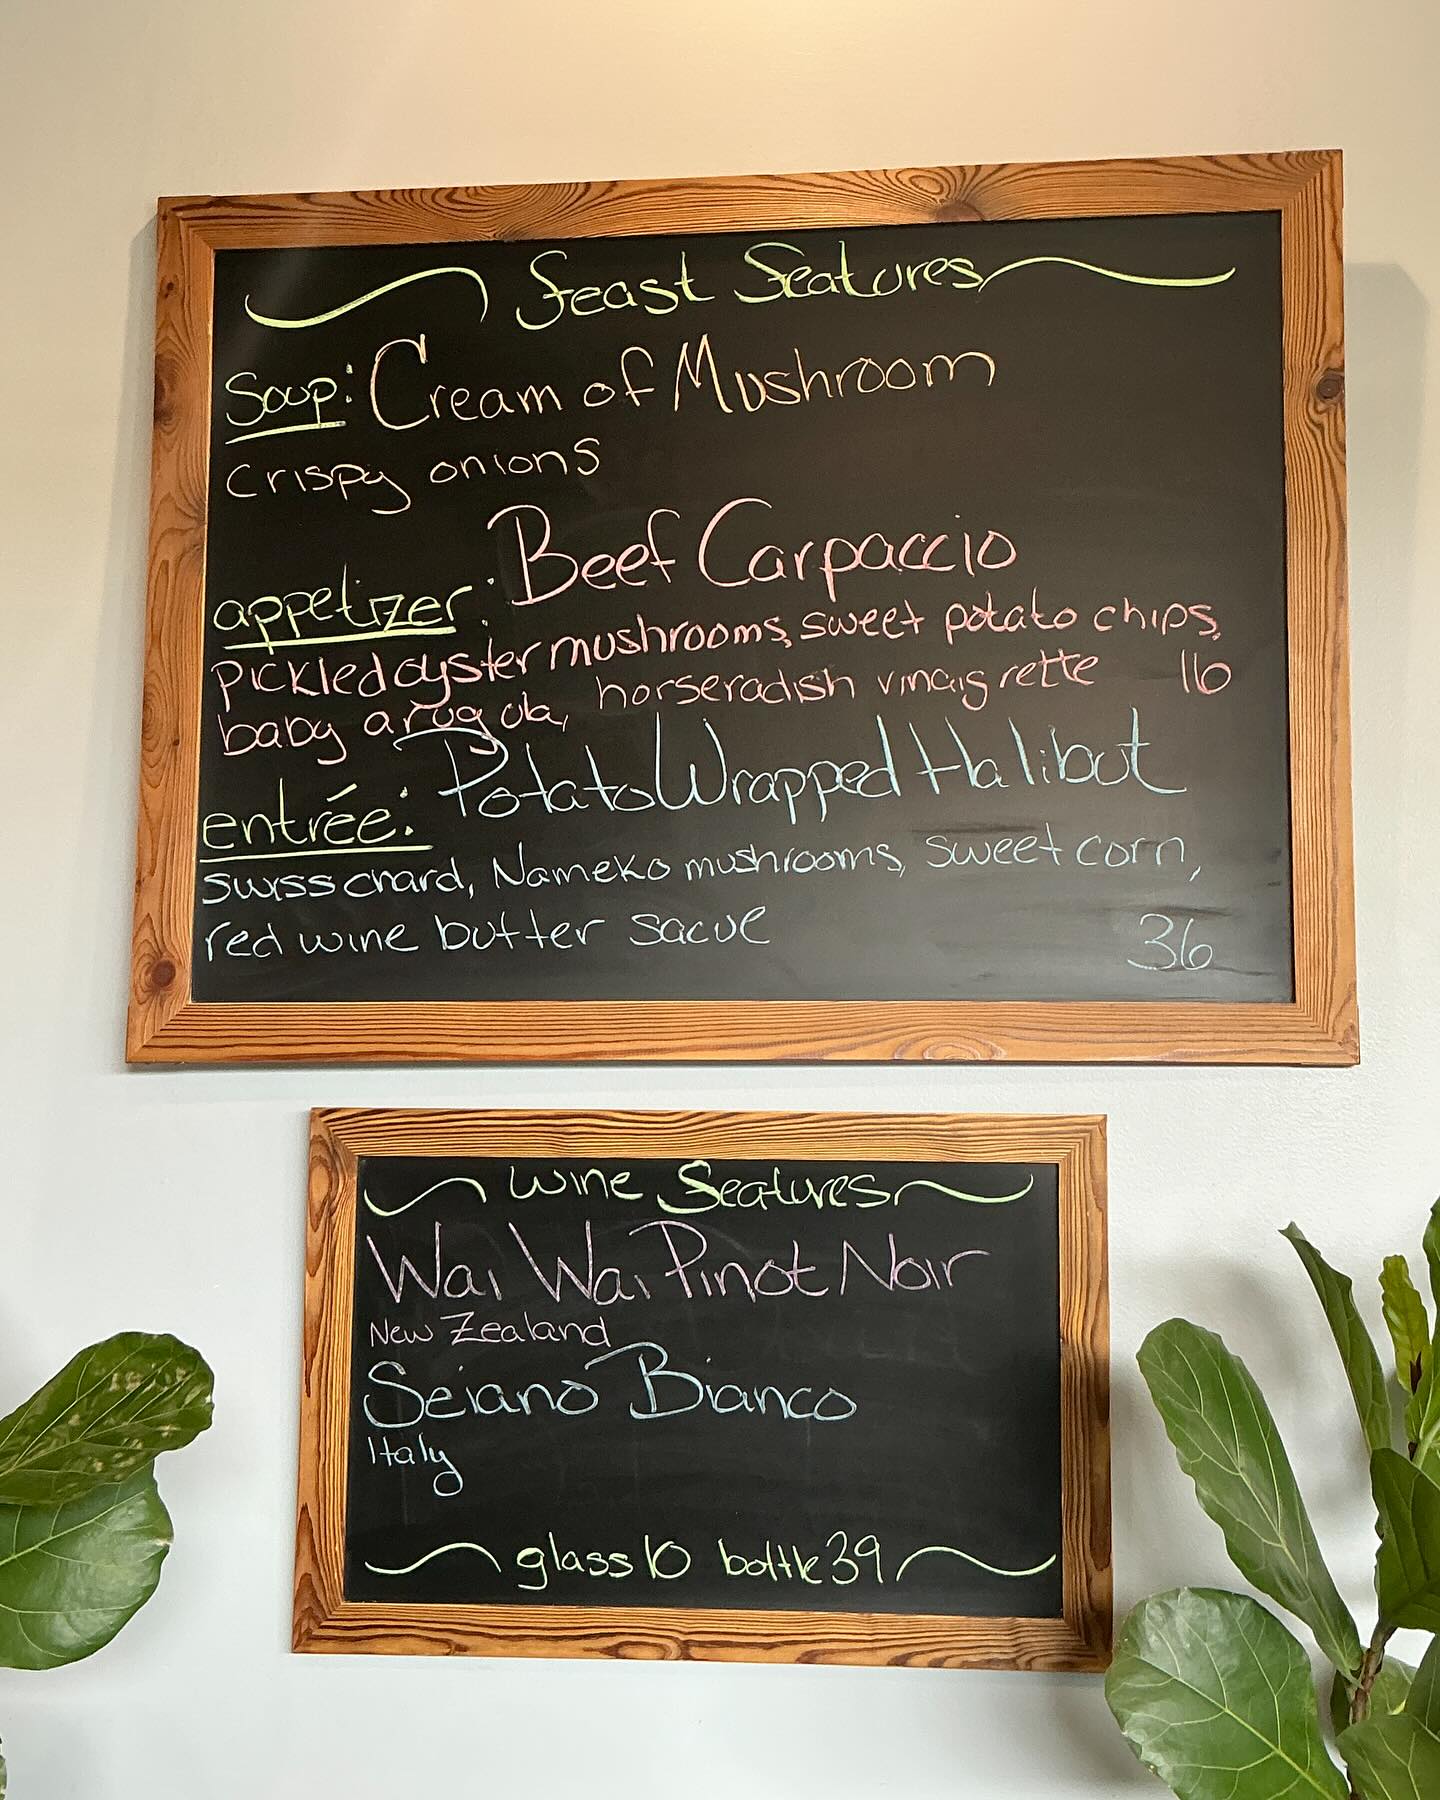 Feast Features
Soup: Cream of Mushroom
crispy onions
appetizer: Beef Carpaccio
pickled oyster mushrooms, sweet potato chips,
baby arugula, horseradish vinaigrette 16
entrée: Potato Wrapped Halibut
swiss chard, Nameko mushrooms, sweet corn,
red wine butter sacue 36
Wine Features
Wai Wai Pinot Noir
New Zealand
Seiano Bianco
Italy
glass 10 bottle 39